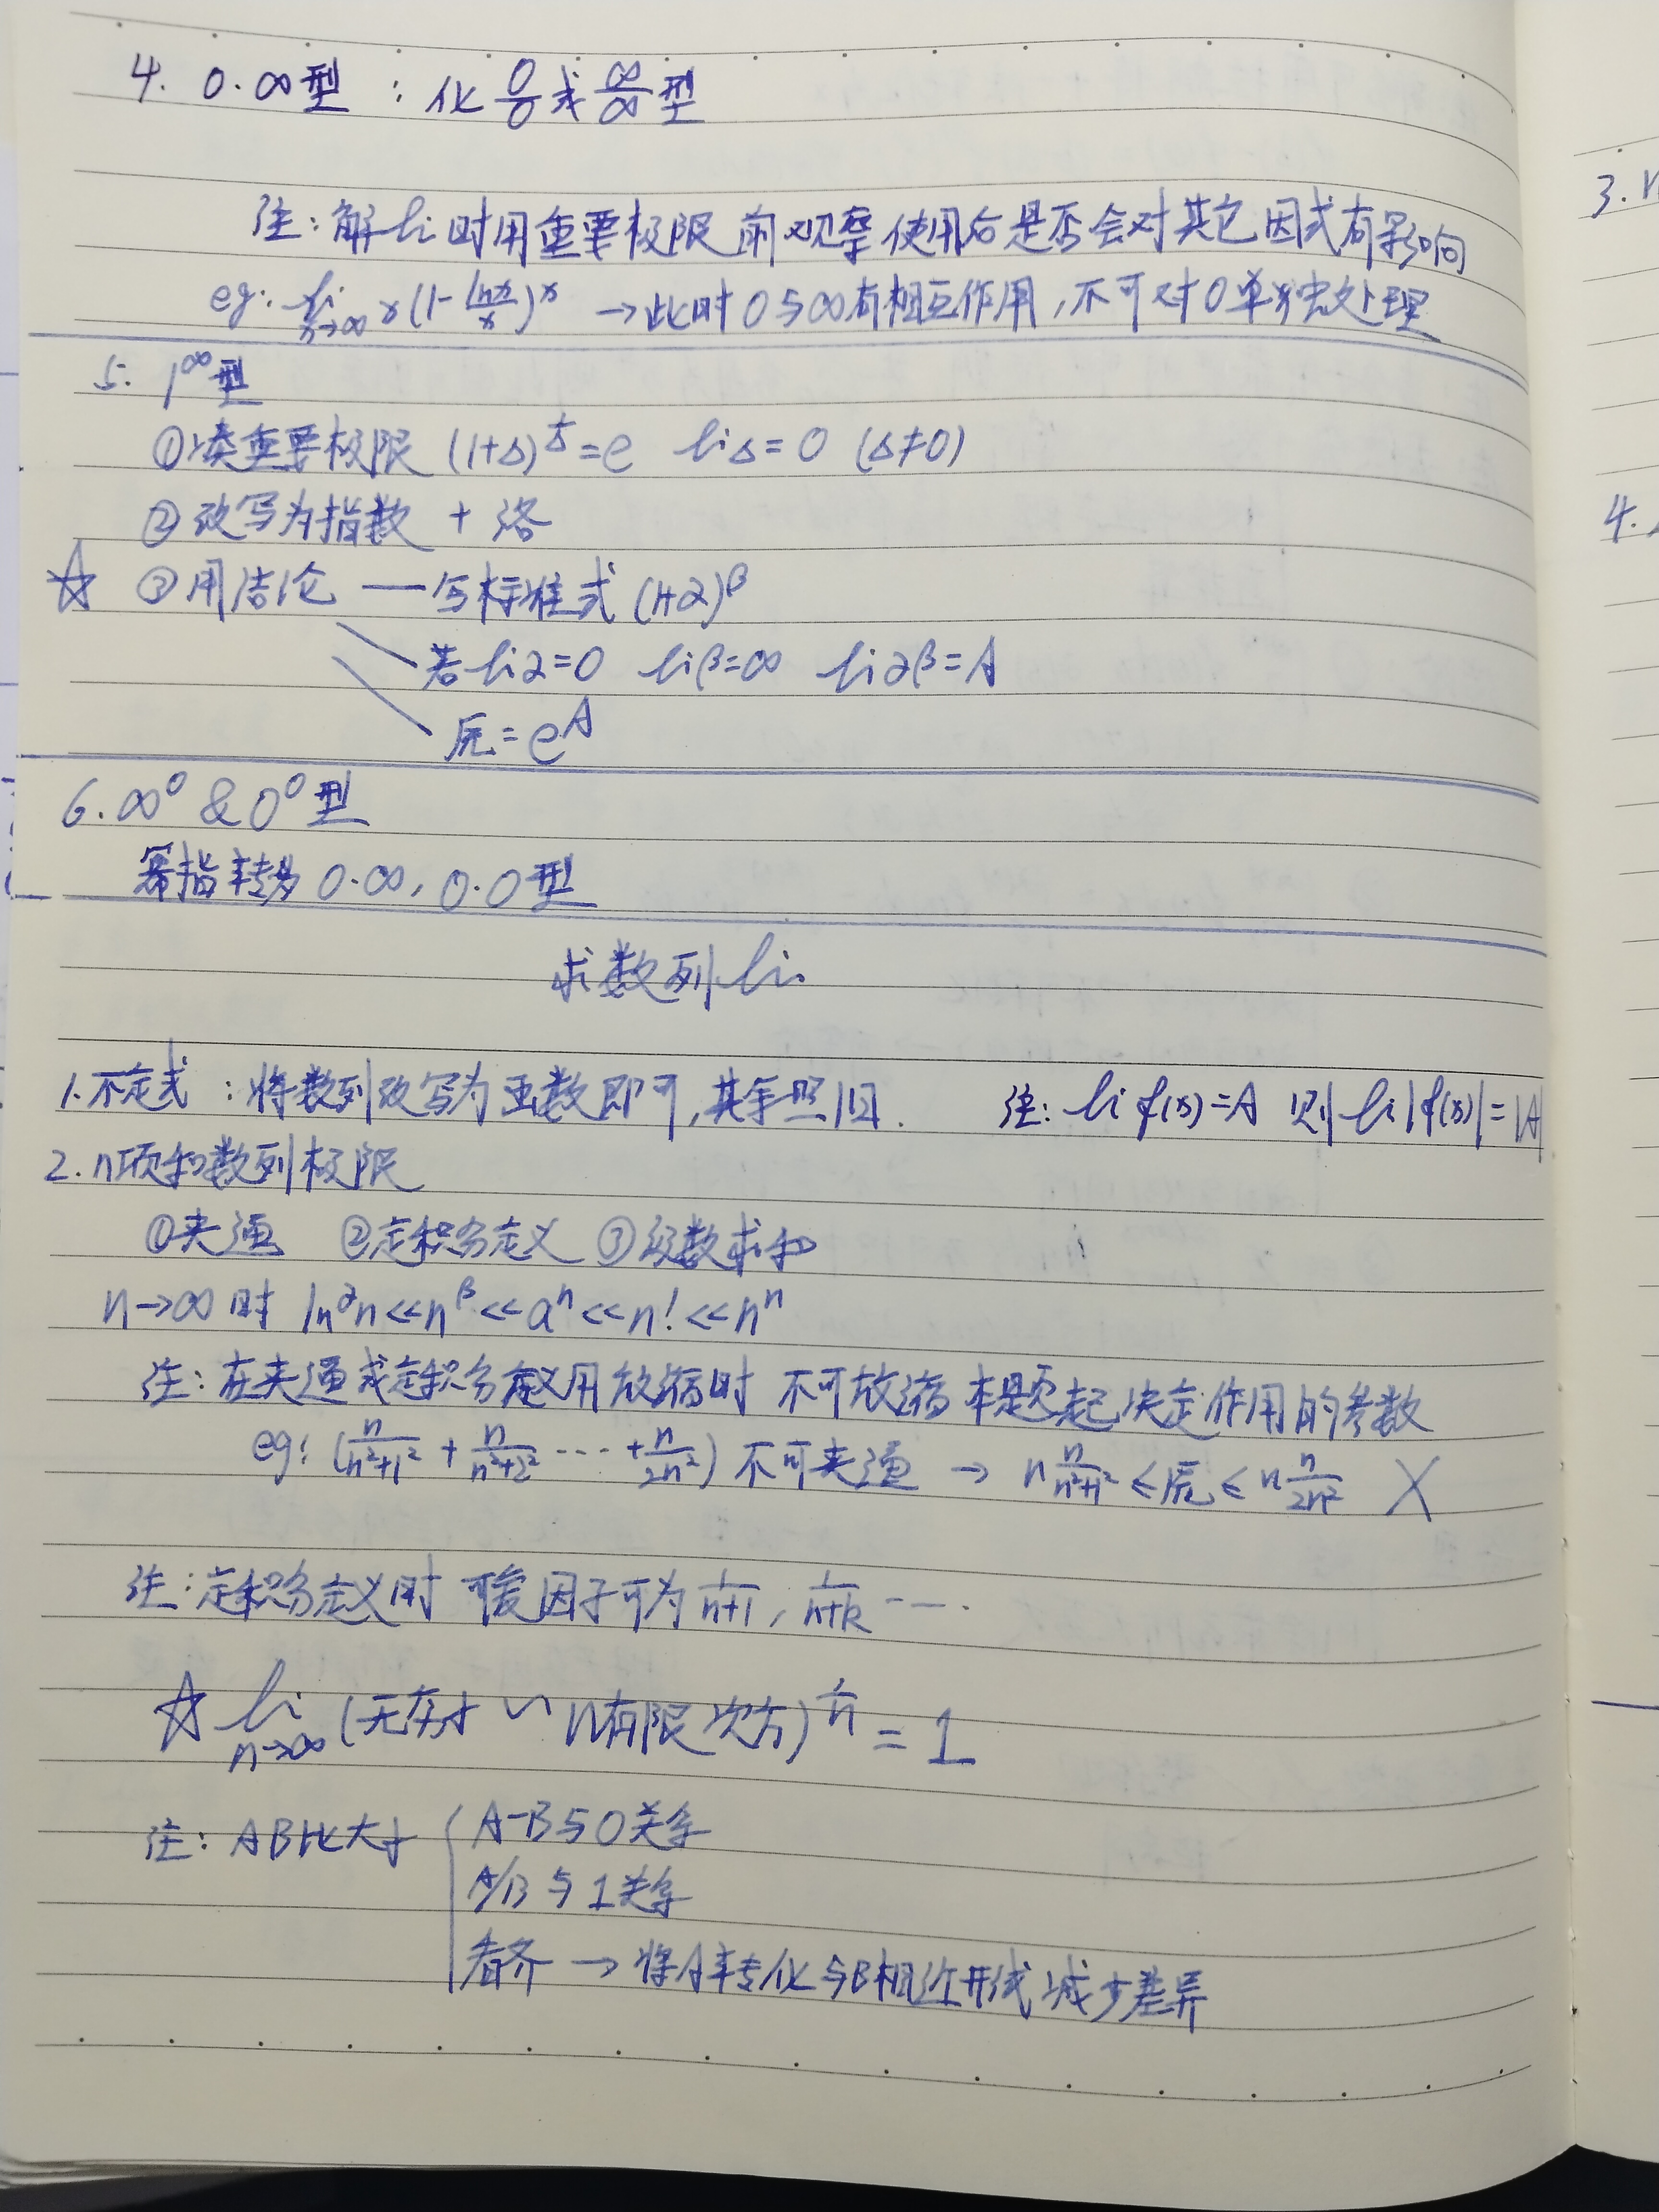 4. 0·∞型 : 化 0/0 或 ∞/∞ 型
注: 解li时用重要极限前观察使用后是否会对其它因式有影响
eg: li x→∞ x(1-lnx/x)^x →此时0与∞有相互作用,不可对0单独处理
5. 1^∞型
①凑重要极限 (1+Δ)^(1/Δ)=e liΔ=0 (Δ≠0)
②改写为指数 + 洛
☆ ③用结论 — 写标准式 (1+α)^β
若liα=0 liβ=∞ liαβ=A
原=e^A
6. ∞^0 & 0^0 型
幂指转 0·∞, 0·0型
求数列li
1.不定式 : 将数列改写为函数即可,其余照旧. 注: li f(x)=A 则 li|f(x)|=|A|
2. n项和数列极限
①夹逼 ②定积分定义 ③级数求和
n→∞时 ln^α n<<n^β<<a^n<<n!<<n^n
注: 在夹逼或定积分定义用放缩时 不可放缩本题起决定作用的参数
eg: (n/(n²+1²) + n/(n²+2²) ··· + n/(2n²)) 不可夹逼 → n n/(n²+1²) ≤原≤ n n/(2n²) ×
注: 定积分定义时 可爱因子可为 1/(n+1), 1/(n+k) ····
☆ li n→∞ (无穷小 ~ n有限次方)^(1/n) = 1
注: AB比大小 { A-B与0关系
A/B 与 1关系
看齐 → 将A转化与B相近形式 减少差异
3.
4.